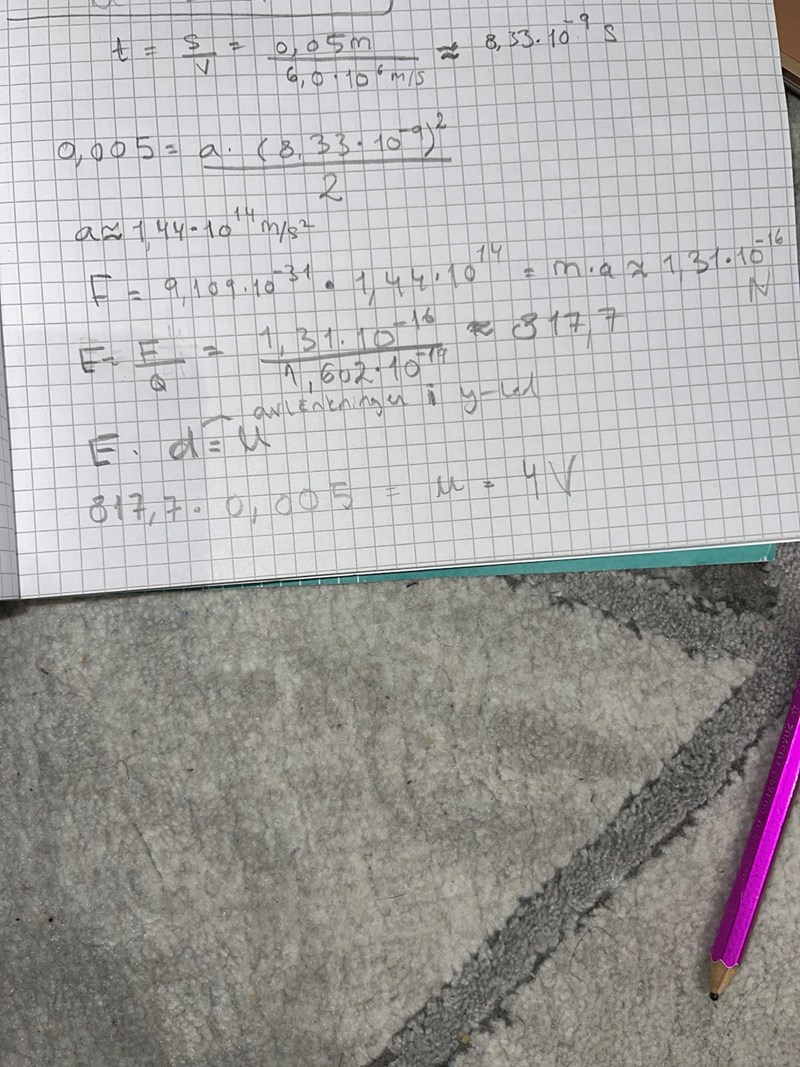 t = s/v = 0,05m / 6,0·10⁶ m/s ≈ 8,33·10⁻⁹ s
0,005 = a·(8,33·10⁻⁹)² / 2
a ≈ 1,44·10¹⁴ m/s²
F = 9,109·10⁻³¹ · 1,44·10¹⁴ = m·a ≈ 1,31·10⁻¹⁶ N
E = F/Q = 1,31·10⁻¹⁶ / 1,602·10⁻¹⁹ ≈ 817,7
avlenkningen i y-led
E · d = U
817,7 · 0,005 = u = 4V